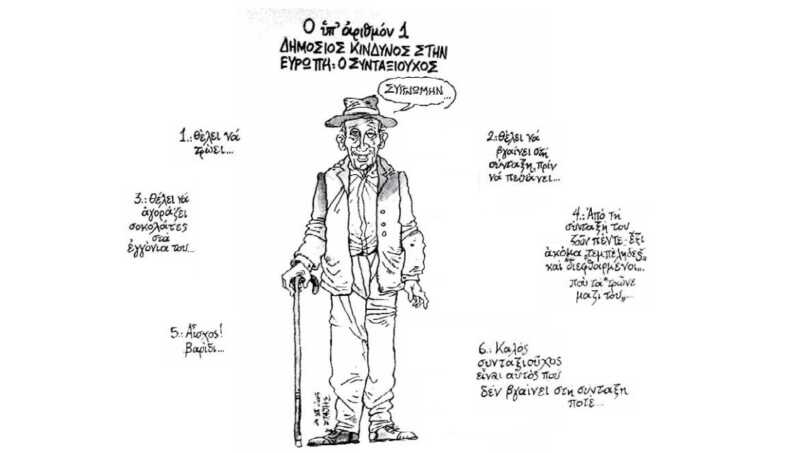 Ο ὑπ' ἀριθμόν 1
ΔΗΜΟΣΙΟΣ ΚΙΝΔΥΝΟΣ ΣΤΗΝ
ΕΥΡΩΠΗ: Ο ΣΥΝΤΑΞΙΟΥΧΟΣ
ΣΥΓΓΝΩΜΗΝ...
1.: θέλει νά
τρώει...
2.: θέλει νά
βγαίνει στή
σύνταξη, πρίν
νά πεθάνει...
3.: θέλει νά
ἀγοράζει
σοκολάτες
στά
ἐγγόνια του...
4.: Ἀπό τή
σύνταξη του
ζοῦν πέντε-ἕξι
ἀκόμα „τεμπέληδες„
καί „διεφθαρμένοι„...
πού τα "τρῶνε
μαζί του„...
5.: Αἶσχος!
βαρίδι...
6.: Καλός
συνταξιοῦχος
εἶναι αὐτός πού
δέν βγαίνει στή σύνταξη
ποτέ...
ΣΤΑΘΗΣ